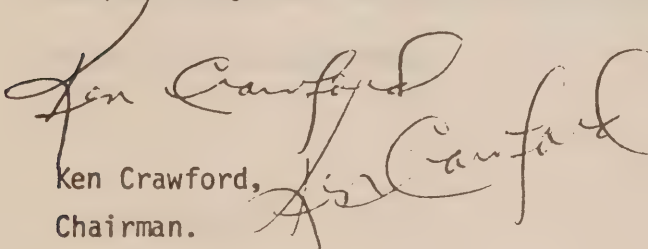 Ken Crawford
Ken Crawford
Ken Crawford,
Chairman.